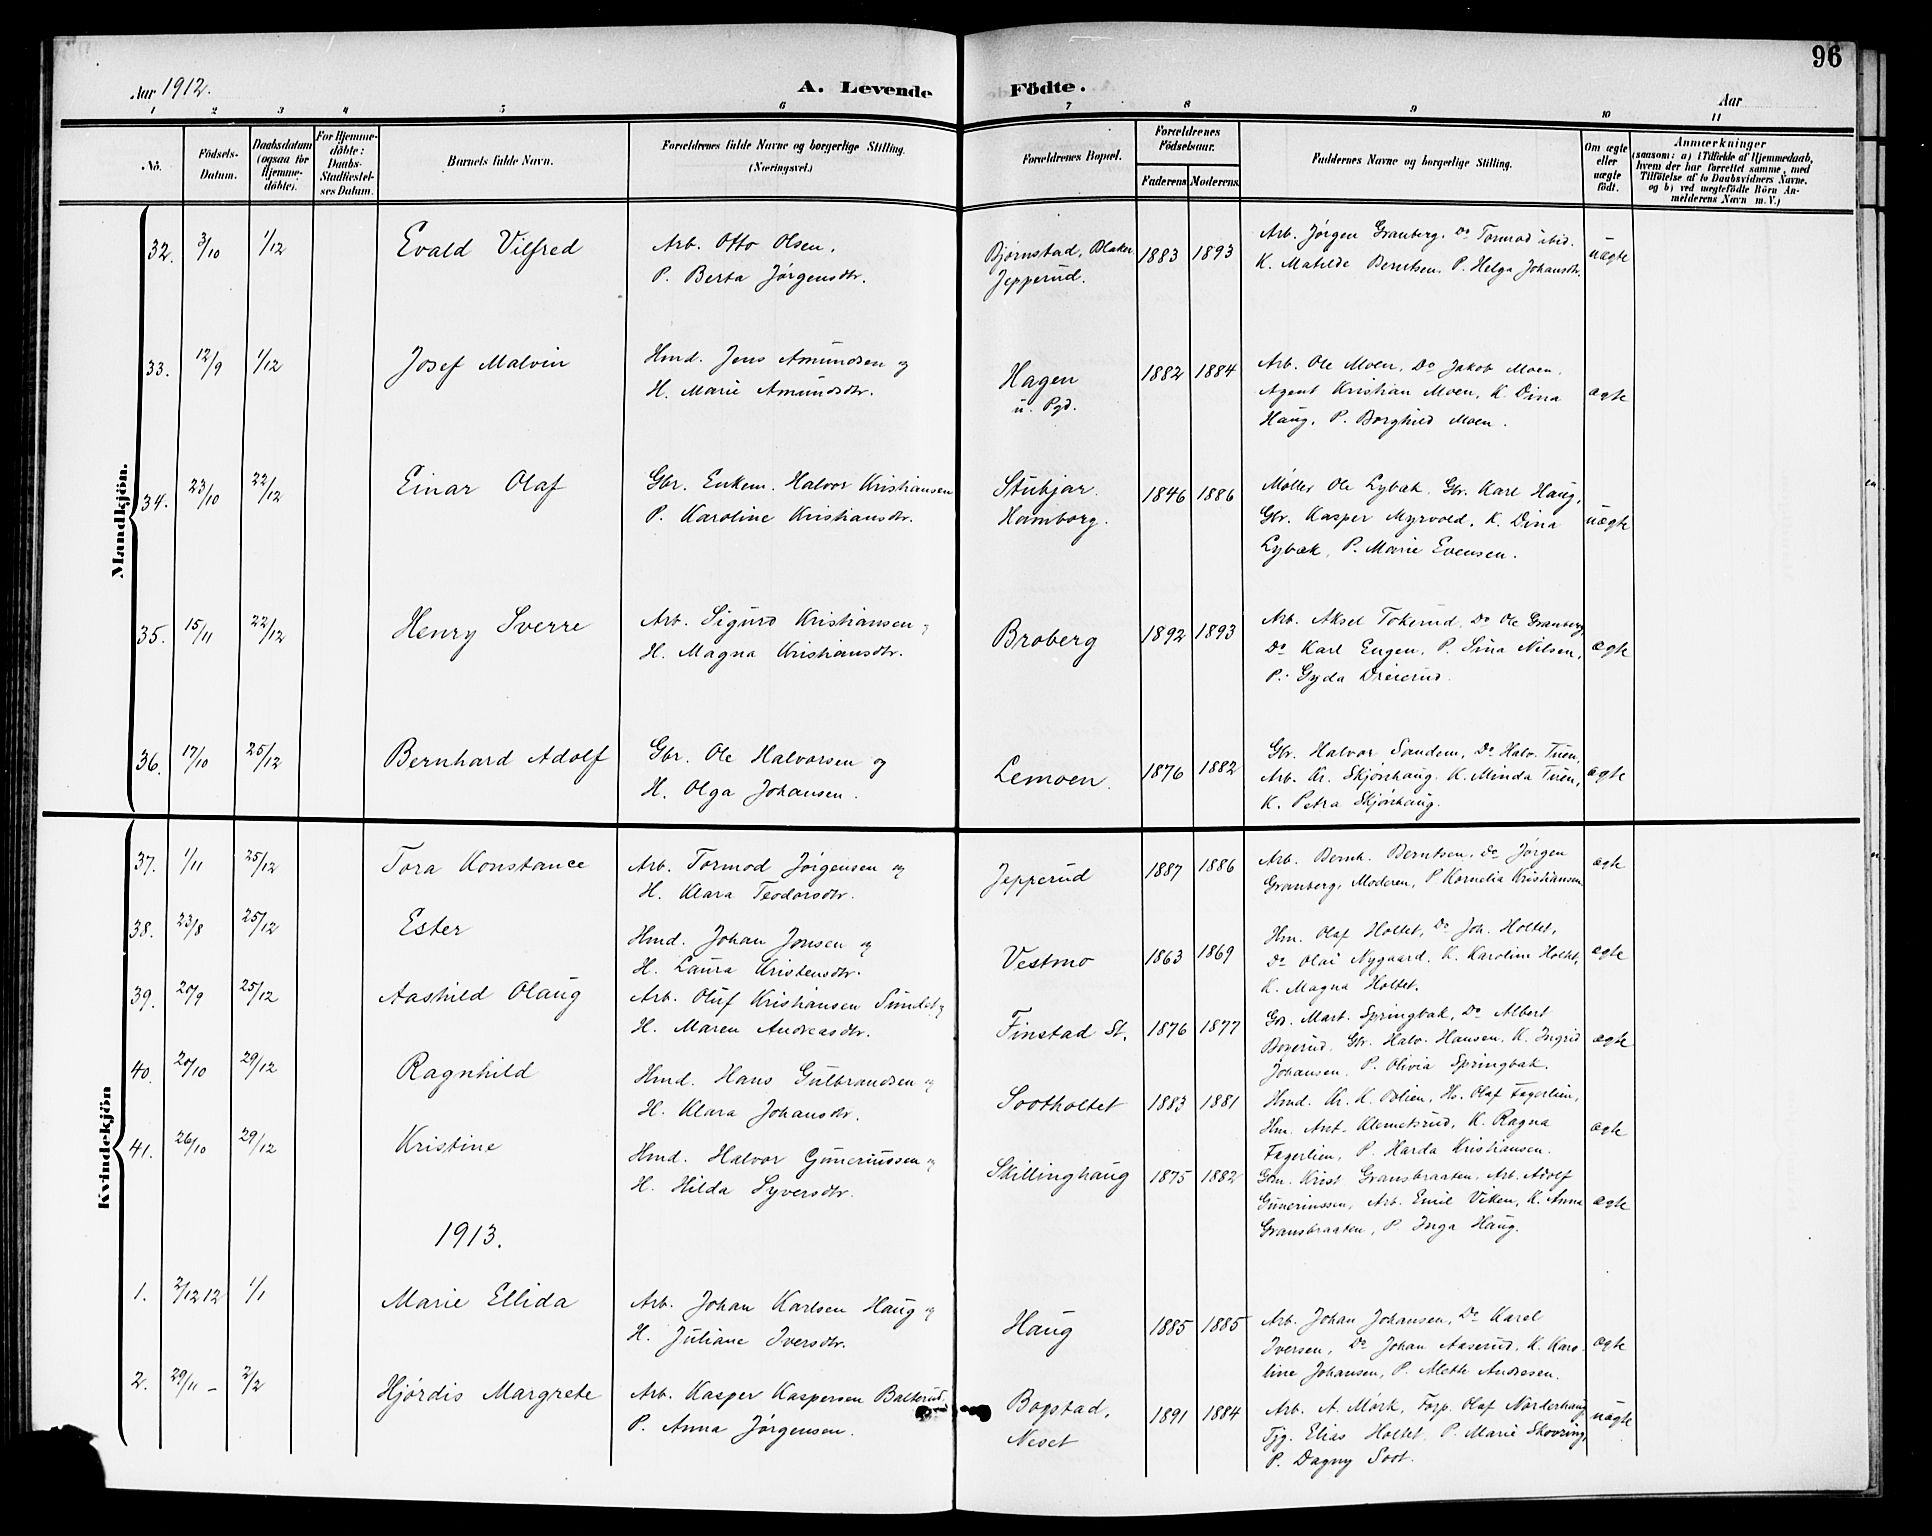 96
Aar 1912. A. Levende Födte. Aar
1 2 3 4 5 6 7 8 9 10 11
No. Födsels-Datum. Daabsdatum (ogsaa for Hjemmedöbte). For Hjemmedöbte: Daabs-Stadfæstelses Datum. Barnets fulde Navn. Forældrenes fulde Navne og borgerlige Stilling. (Næringsvei.) Forældrenes Bopæl. Forældrenes Födselsaar. Faderens Moderens. Faddernes Navne og borgerlige Stilling. Om ægte eller uægte födt. Anmærkninger (saasom: a) i Tilfælde af Hjemmedaab, hvem der har forrettet samme, med Tilföielse af to Daabsvidners Navne, og b) ved uægtefödte Börn Anmelderens Navn m. V.)
Mandkjön.
32. 3/10 1/12 Evald Vilfred Arb. Otto Olsen, Bjørnstad, Blaker 1883 1893 Arb. Jørgen Granberg, Do Tormod ibid. uægte
P. Berta Jørgensdtr. Jepperud. K. Matilde Berntsen, P. Helga Johansdtr.
33. 12/9 1/12 Josef Malvin Hmd. Jens Amundsen og Hagen 1882 1884 Arb. Ole Moen, Do Jakob Moen,
H. Marie Amundsdtr. u. Pgd. Agent Kristian Moen, K. Dina ægte
Haug, P. Borghild Moen.
34. 23/10 22/12 Einar Olaf Gbr. Enkem. Halvor Kristiansen Stubjar. 1846 1886 Møller Ole Lybæk, Gbr. Karl Haug,
P. Karoline Kristiansdtr. Hamborg. Gbr. Kasper Myrvold, K. Dina uægte
Lybæk, P. Marie Evensen.
35. 15/11 22/12 Henry Sverre Arb. Sigurd Kristiansen og Broberg 1892 1893 Arb. Aksel Tokerud, Do Ole Granberg,
H. Magna Kristiansdtr. Do Karl Engen, P. Sina Nilsen, ægte
P. Gyda Dreierud.
36. 17/10 25/12 Bernhard Adolf Gbr. Ole Halvorsen og Lemoen. 1876 1882 Gbr. Halvor Sandem, Do Halv. Tuen,
H. Olga Johansen. Arb. Kr. Skjønhaug. K. Minda Tuen, ægte
K. Petra Skjønhaug.
Kvindekjön
37. 1/11 25/12 Tora Konstance Arb. Tormod Jørgensen og Jepperud 1887 1886 Arb. Bernh. Berntsen, Do Jørgen ægte
H. Klara Teodorsdtr. Granberg, Moderen, P Kornelia Kristiansen
38. 23/8 25/12 Ester Hmd. Johan Jonsen og Vestmo 1863 1869 Hm. Olaf Holtet, Do Joh. Holtet,
H. Laura Kristensdtr. Do Olai Nygaard, K. Karoline Holtet, ægte
K. Magna Holtet.
39. 20/9 25/12 Aashild Olaug Arb. Oluf Kristiansen Sundet og Finstad St. 1876 1877 Gbr. Mart. Springbak, Do Albert
H. Maren Andreasdtr. Bøverud, Gbr. Halv. Hansen, K. Ingrid ægte
Johansen, P. Olivia Springbak.
40. 20/10 29/12 Ragnhild Hmd. Hans Gulbrandsen og Sootholtet 1883 1881 Hmd. Kr. K. Olien, Hr. Olaf Fagerlien,
H. Klara Johansdtr. Hm. Ant. Klemetsrud, K. Ragna ægte
Fagerlien, P. Harda Kristiansen.
41. 26/10 29/12 Kristine Hmd. Halvor Guneriussen og Skillinghaug 1875 1882 Gbm. Krist. Gransbraaten, Arb. Adolf
H. Hilda Syversdtr. Guneriussen, Arb. Emil Viken, K. Anna ægte
Gransbraaten, P Inga Haug.
1913.
1. 2/12 12 1/1 Marie Ellida Arb. Johan Karlsen Haug og Haug 1885 1885 Arb. Johan Johansen, Do Karel
H. Juliane Iversdtr. Iversen, Do Johan Aaserud, K. Karo- ægte
line Johansen, P. Meth Andresen.
2. 29/11 – 2/2 Hjørdis Margrete Arb. Kasper Kaspersen Balterud, Bogstad, 1891 1884 Arb. A. Mørk, Forp. Olaf Norderhaug, uægte
P. Anna Jørgensen. Neset Tjg. Elias Holtet, P. Marie Skovring,
P. Dagny Soot.